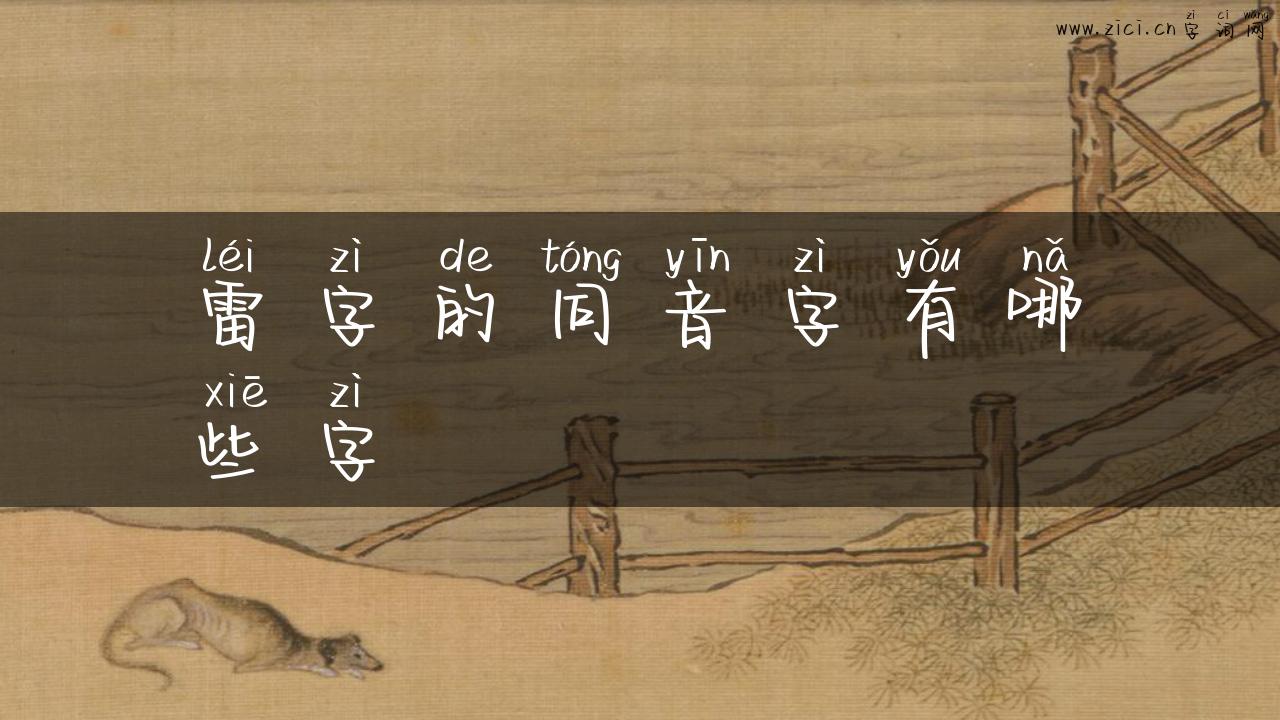 zì cí wǎng
www.zici.cn 字词网
léi zì de tóng yīn zì yǒu nǎ
雷字的同音字有哪
xiē zì
些字